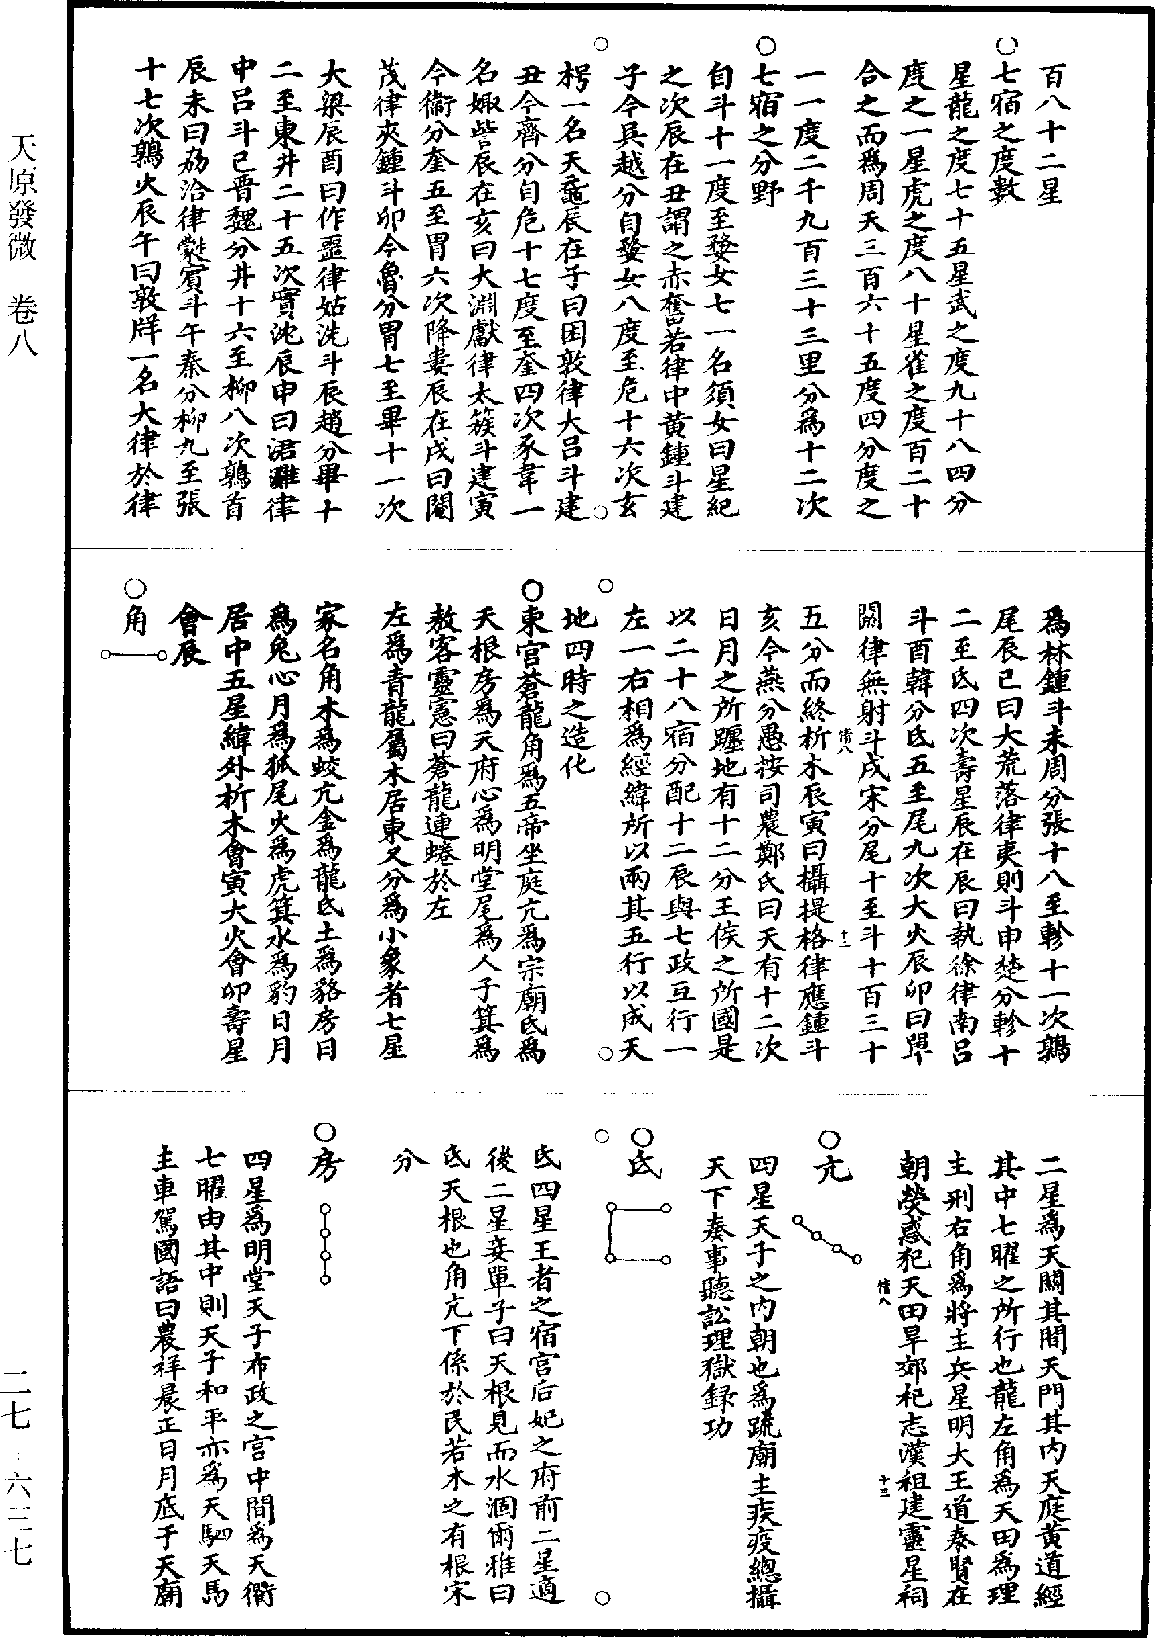 百八十二星
○七宿之度數
星龍之度七十五星武之度九十八四分
度之一星虎之度八十星雀之度百二十
合之而爲周天三百六十五度四分度之
一一度二千九百三十三里分爲十二次
○七宿之分野
自斗十一度至婺女七一名須女曰星紀
之次辰在丑謂之赤奮若律中黄鍾斗建
子今吳越分自婺女八度至危十六次玄
枵一名天黿辰在子曰困敦律大呂斗建
丑今齊分自危十七度至奎四次豕韋一
名娵訾辰在亥曰大淵獻律太簇斗建寅
今衞分奎五至胃六次降婁辰在戌曰閹
茂律夾鍾斗卯今魯分胃七至畢十一次
大梁辰酉曰作噩律姑洗斗辰趙分畢十
二至東井二十五次實沈辰申曰涒灘律
中呂斗巳晋魏分井十六至柳八次鶉首
辰未曰劦洽律㽔賓斗午秦分柳九至張
十七次鶉火辰午曰敦牂一名大律於律
爲林鍾斗未周分張十八至軫十一次鶉
尾辰巳曰大荒落律夷則斗申楚分軫十
二至氐四次壽星辰在辰曰執徐律南呂
斗酉韓分氐五至尾九次大火辰卯曰單
閼律無射斗戌宋分尾十至斗十百三十
五分而終析木辰寅曰攝提格律應鍾斗
亥今燕分愚按司農鄭氏曰天有十二次
日月之所躔地有十二分王侯之所國是
以二十八宿分配十二辰與七政互行一
左一右相爲經緯所以兩其五行以成天
地四時之造化
○東宫蒼龍角爲五帝坐庭亢爲宗廟氐爲
天根房爲天府心爲明堂尾爲人子箕爲
敖客靈憲曰蒼龍連蜷於左
左爲青龍屬木居東又分爲小象者七星
家名角木爲蛟亢金爲龍氐土爲貉房日
爲兔心月爲狐尾火爲虎箕水爲豹日月
居中五星緯外析木會寅大火會卯壽星
會辰
○角
二星爲天關其間天門其内天庭黄道經
其中七曜之所行也龍左角爲天田爲理
主刑右角爲將主兵星明大王道泰賢在
朝熒惑犯天田旱郊祀志漢祖建靈星祠
○亢
四星天子之内朝也爲䟽廟主疾疫總攝
天下奏事聽訟理獄録功
○氐
氐四星王者之宿宫后妃之府前二星適
後二星妾單子曰天根見而水涸爾雅曰
氐天根也角亢下係於氐若木之有根宋
分
○房
四星爲明堂天子布政之宫中間爲天衢
七曜由其中則天子和平亦爲天駟天馬
主車駕國語曰農祥晨正日月底于天廟
天原發微　卷八
二七·六三七